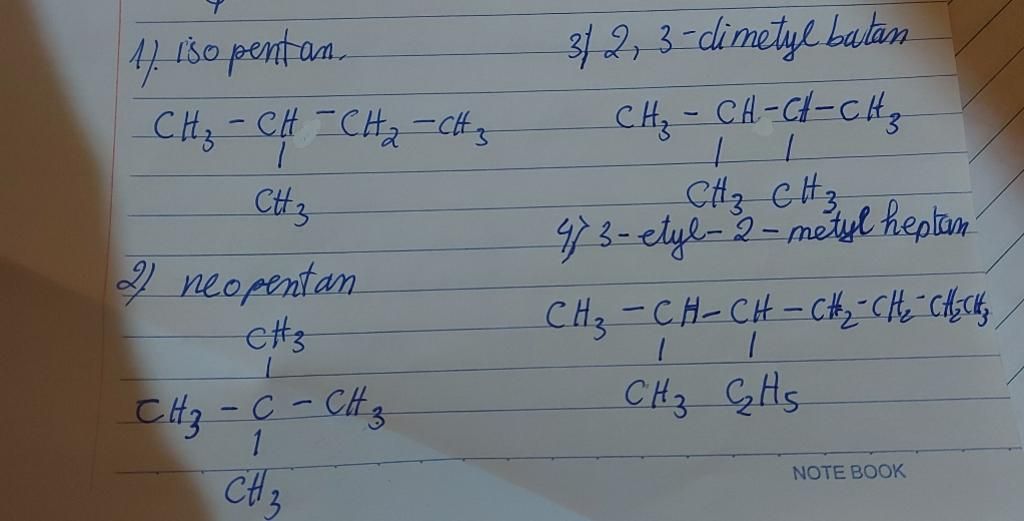 1). iso pentan.
CH3 - CH - CH2 - CH3
|
CH3
2) neopentan
CH3
|
CH3 - C - CH3
|
CH3
3) 2, 3-dimetyl butan
CH3 - CH - CH - CH3
| |
CH3 CH3
4) 3-etyl-2-metyl heptan
CH3 - CH - CH - CH2 - CH2 - CH2CH3
| |
CH3 C2H5
NOTE BOOK